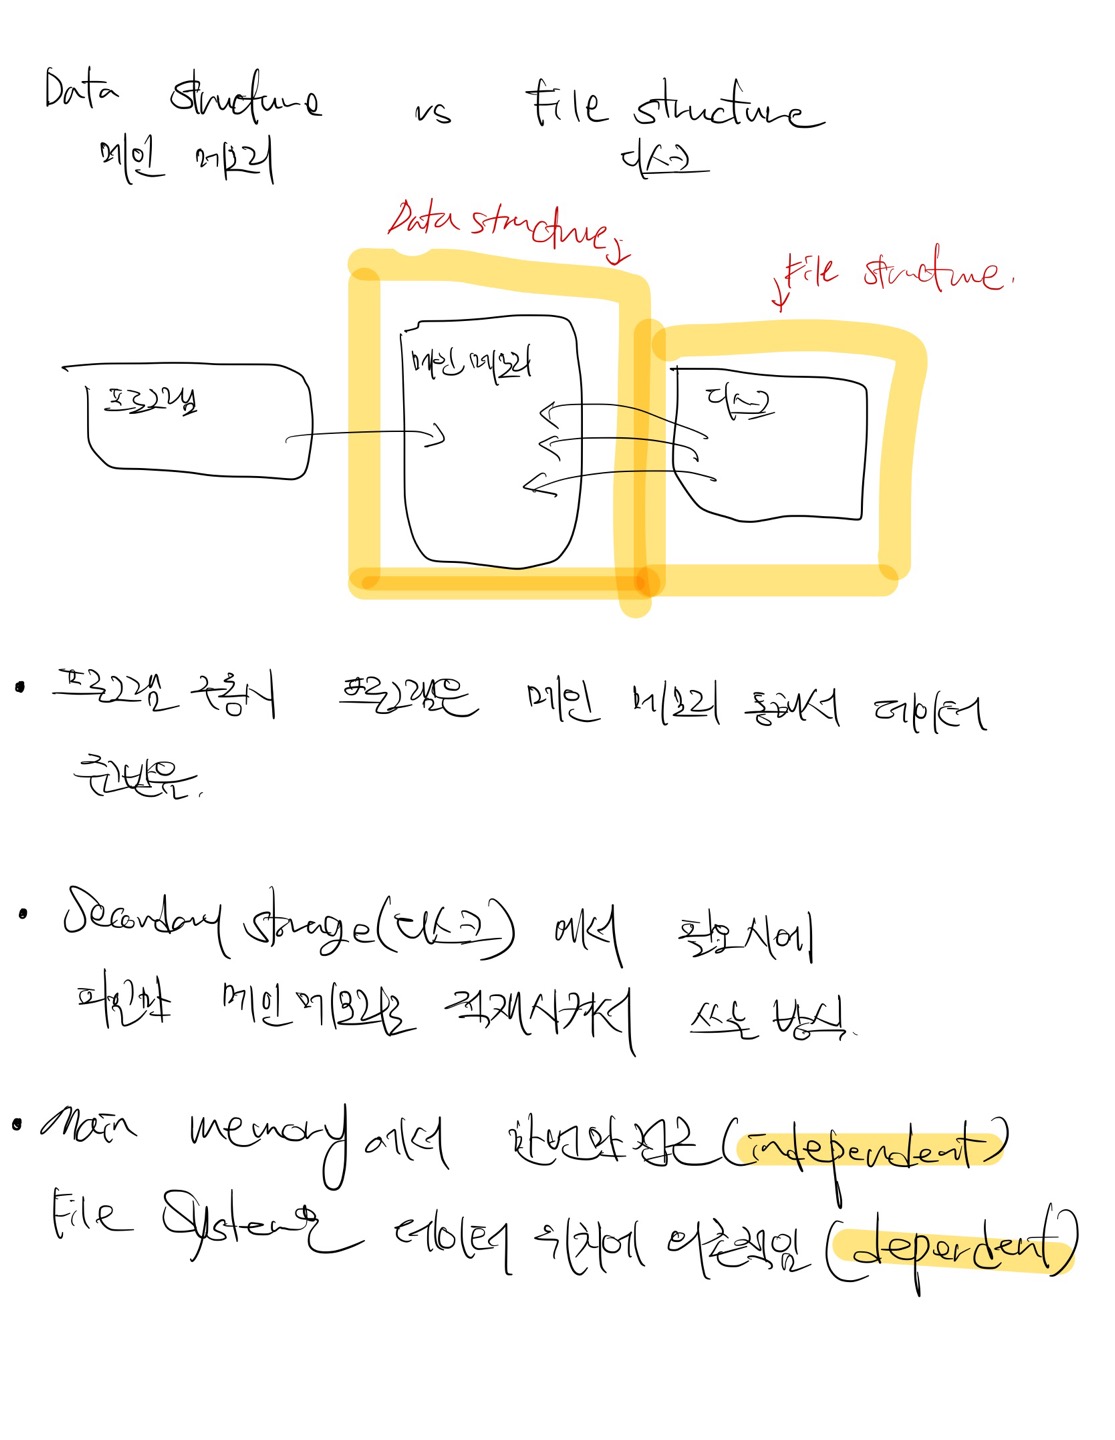 Data structure vs File structure
메인 메모리 디스크
Data structure
File structure.
프로그램
메인 메모리
디스크
• 프로그램 구동시 프로그램은 메인 메모리 통해서 데이터
주고받음.
• Secondary storage(디스크) 에서 필요시에
메인메모리로 적재시켜서 쓰는 방식.
• Main memory에서 한번만 접근(independent)
File System은 데이터 위치에 의존적임 (dependent)